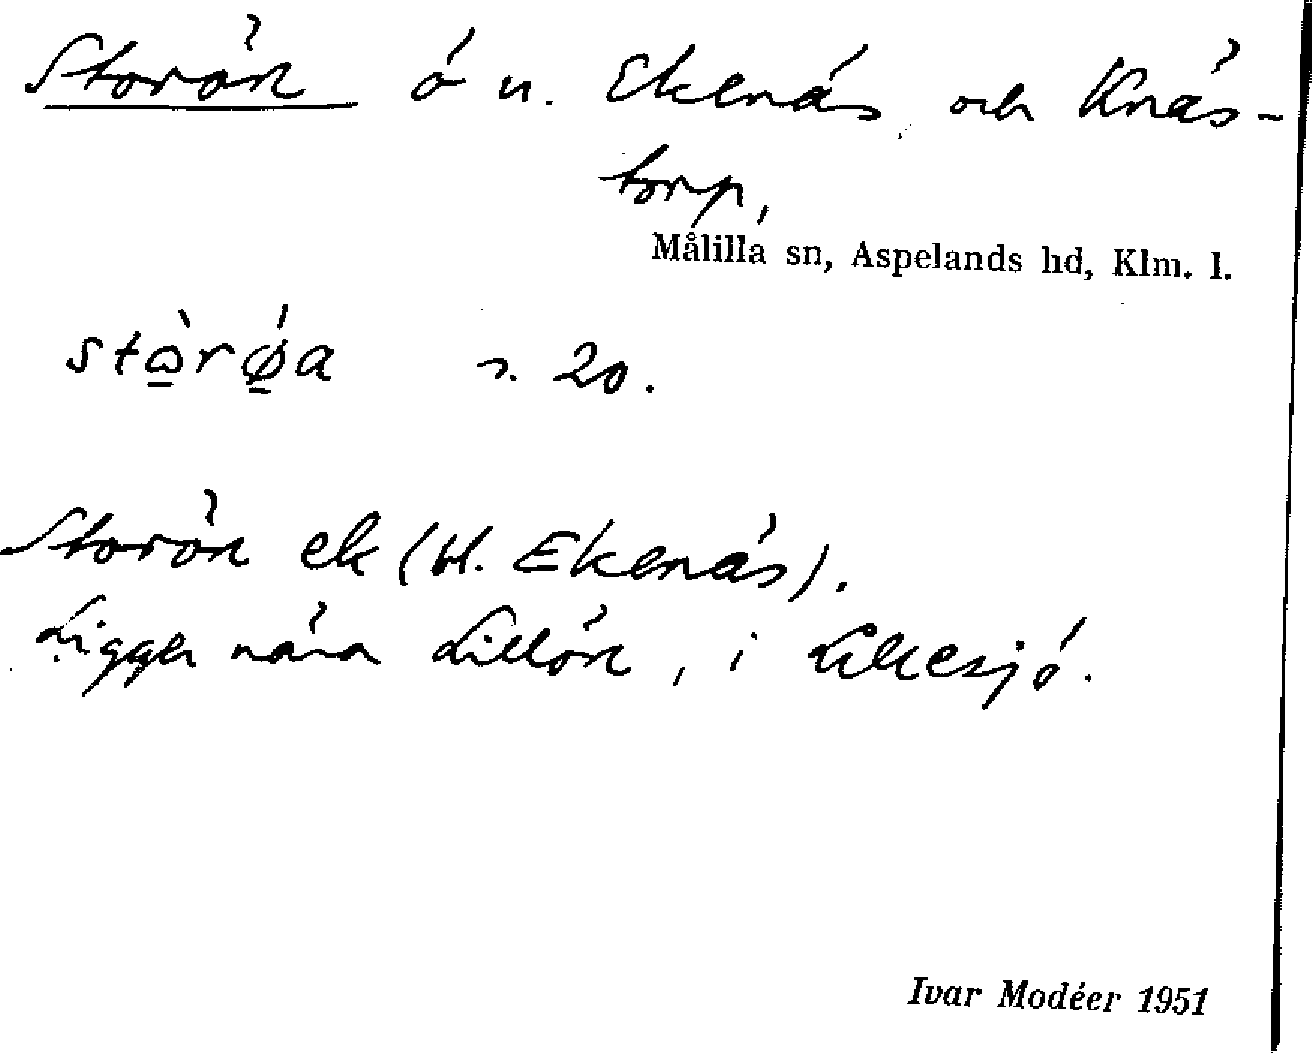 Storön ö u. Ekenäs och Knäs-
torp,
Målilla sn, Aspelands hd, Klm. l.
s. 20.
Storön ek (bl. Ekenäs).
Ligger nära Lillön, i
Ivar Modéer 1951